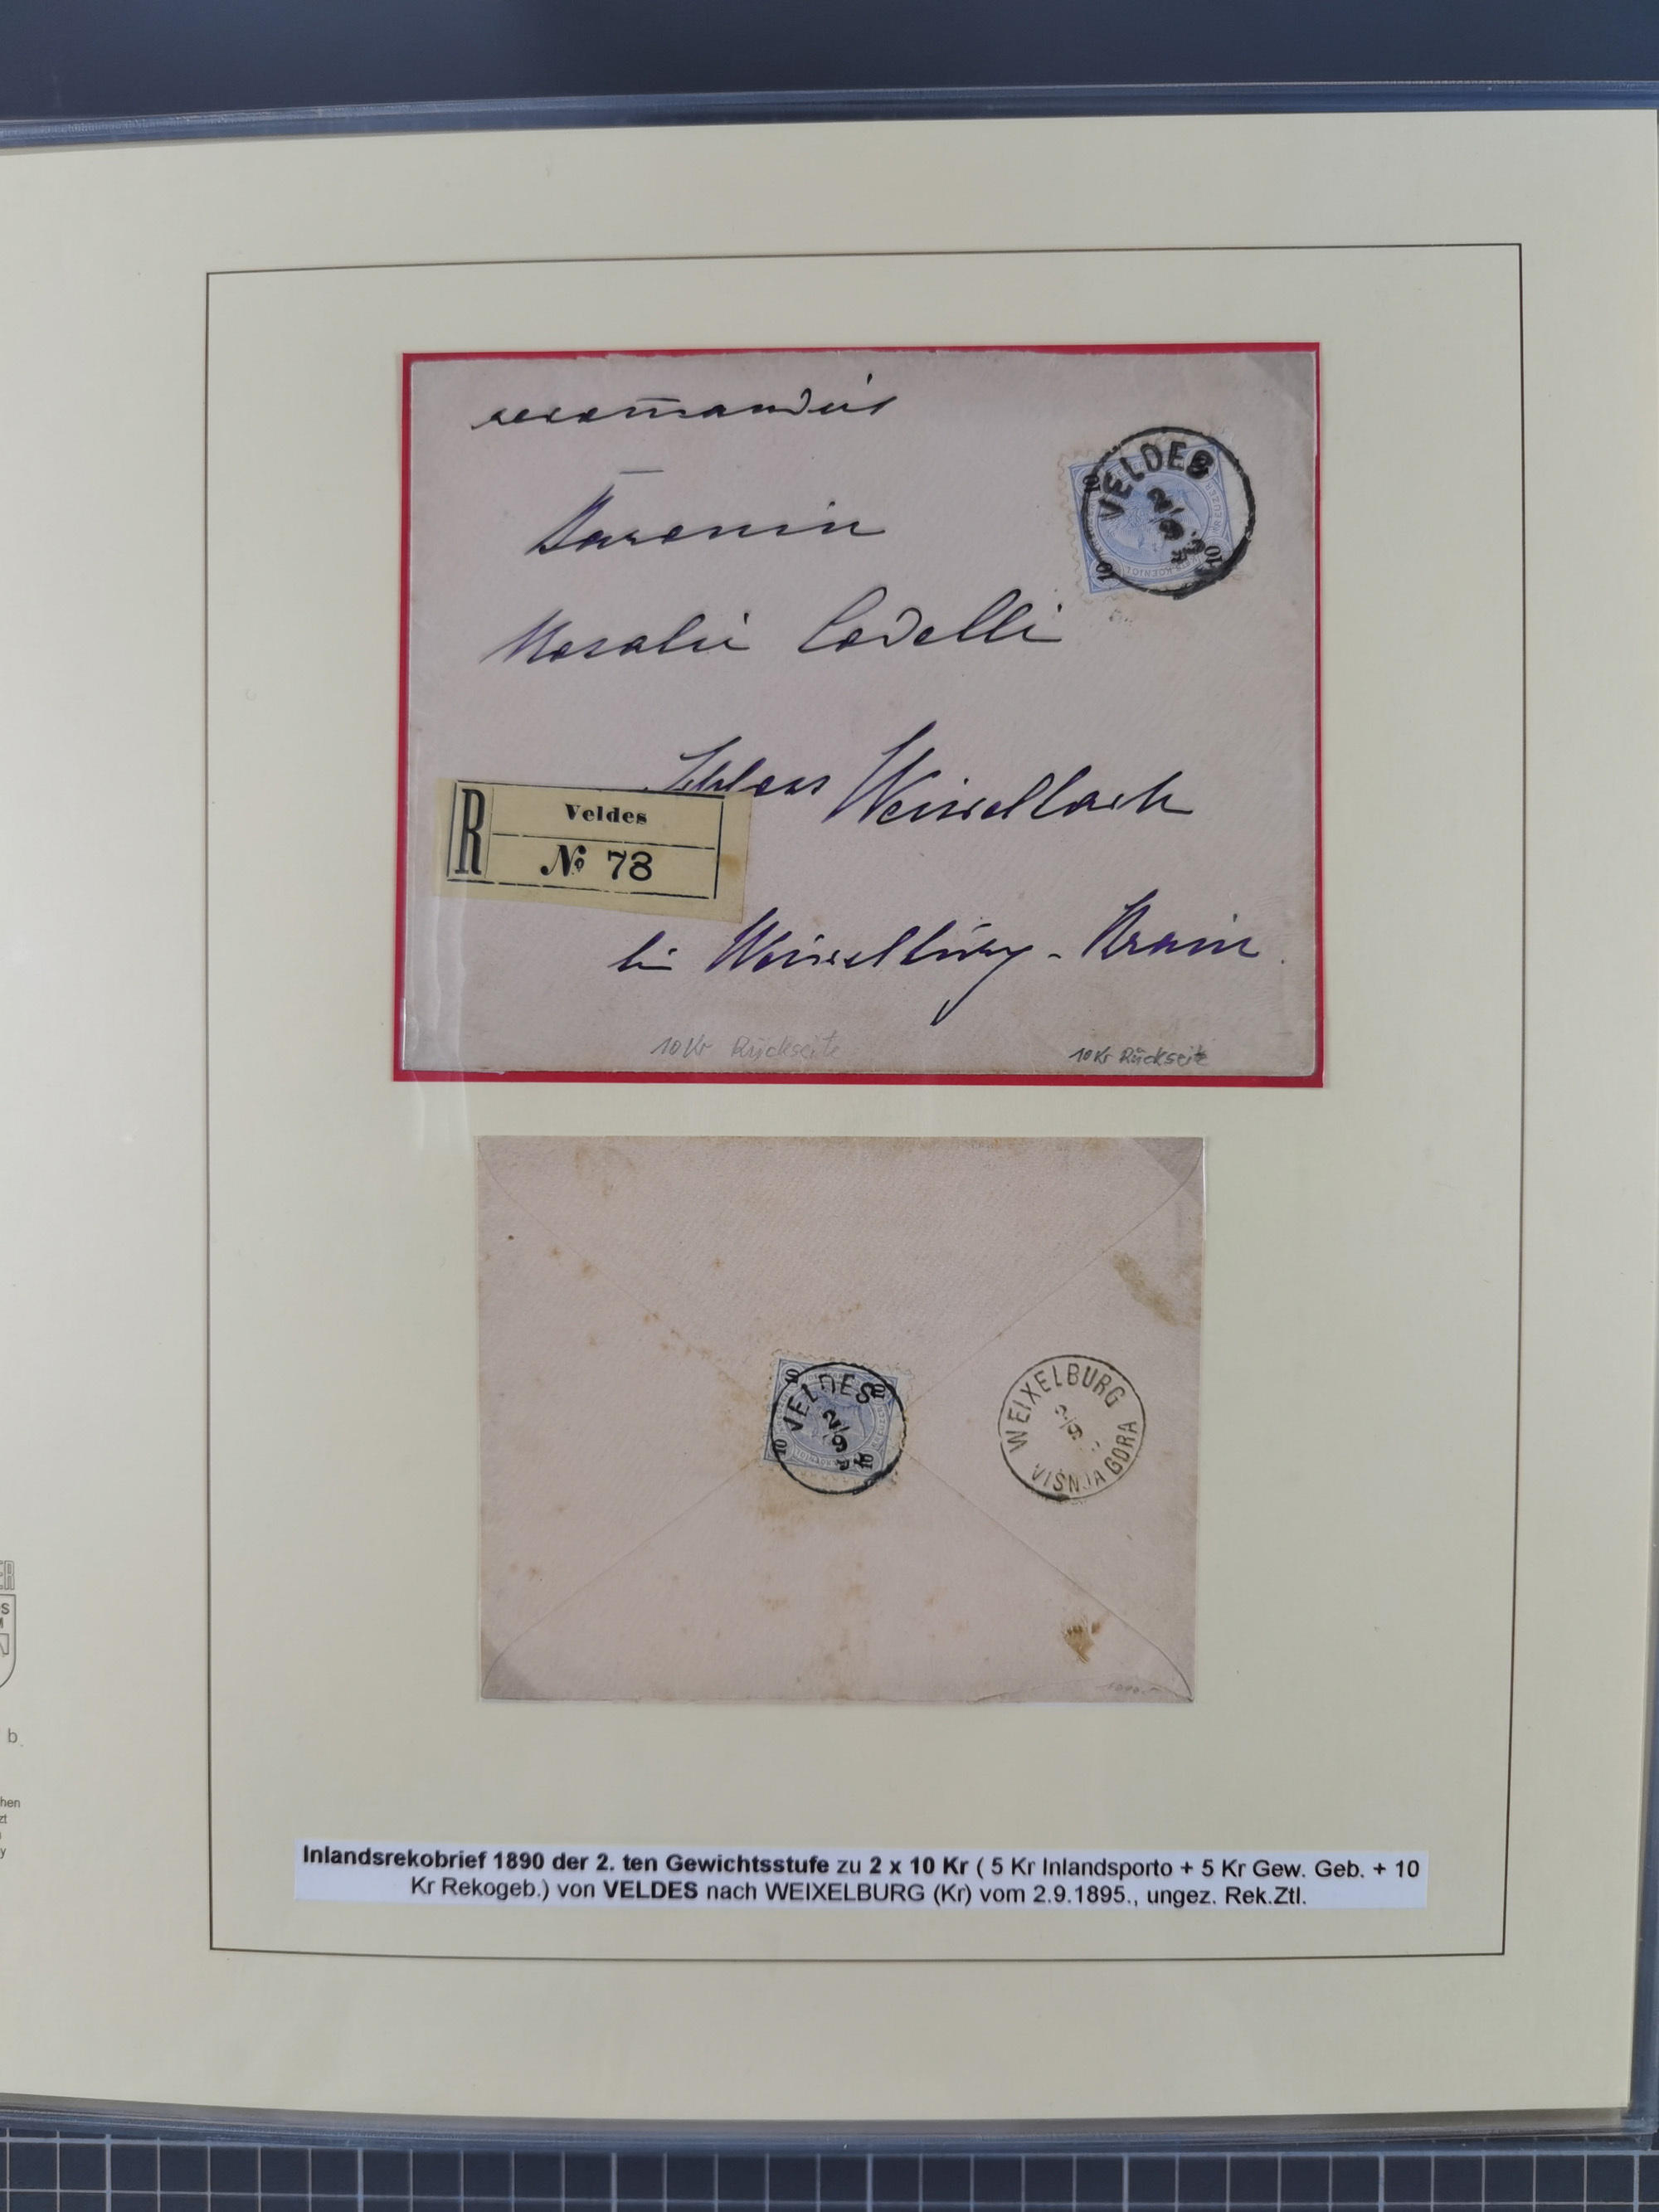 recom̅andirt
Baronin
Rosalie Codelli
Schloss Weixelbach
R
Veldes
№ 73
bei Weixelburg - Krain
10 Kr Rückseite
10 Kr Rückseite
VELDES
2/9
95
10
10
10
VELDES
2/9
10
10
10
WEIXELBURG
2/9
VIŠNJA GORA
b.
hen
zt
y
Inlandsrekobrief 1890 der 2. ten Gewichtsstufe zu 2 x 10 Kr ( 5 Kr Inlandsporto + 5 Kr Gew. Geb. + 10
Kr Rekogeb.) von VELDES nach WEIXELBURG (Kr) vom 2.9.1895., ungez. Rek.Ztl.